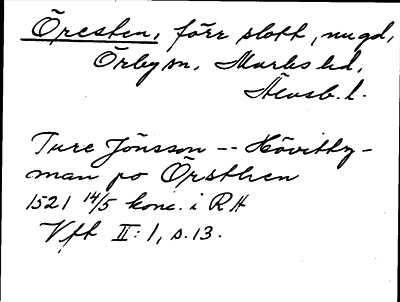 Öresten, förr slott, nu gd,
Örby sn, Marks hd,
Älvsb. l.
Ture Jönsson -- Hövitby-
man po Örsthen
1521 14/5 konc. i RA
Vft II: 1, s. 13.